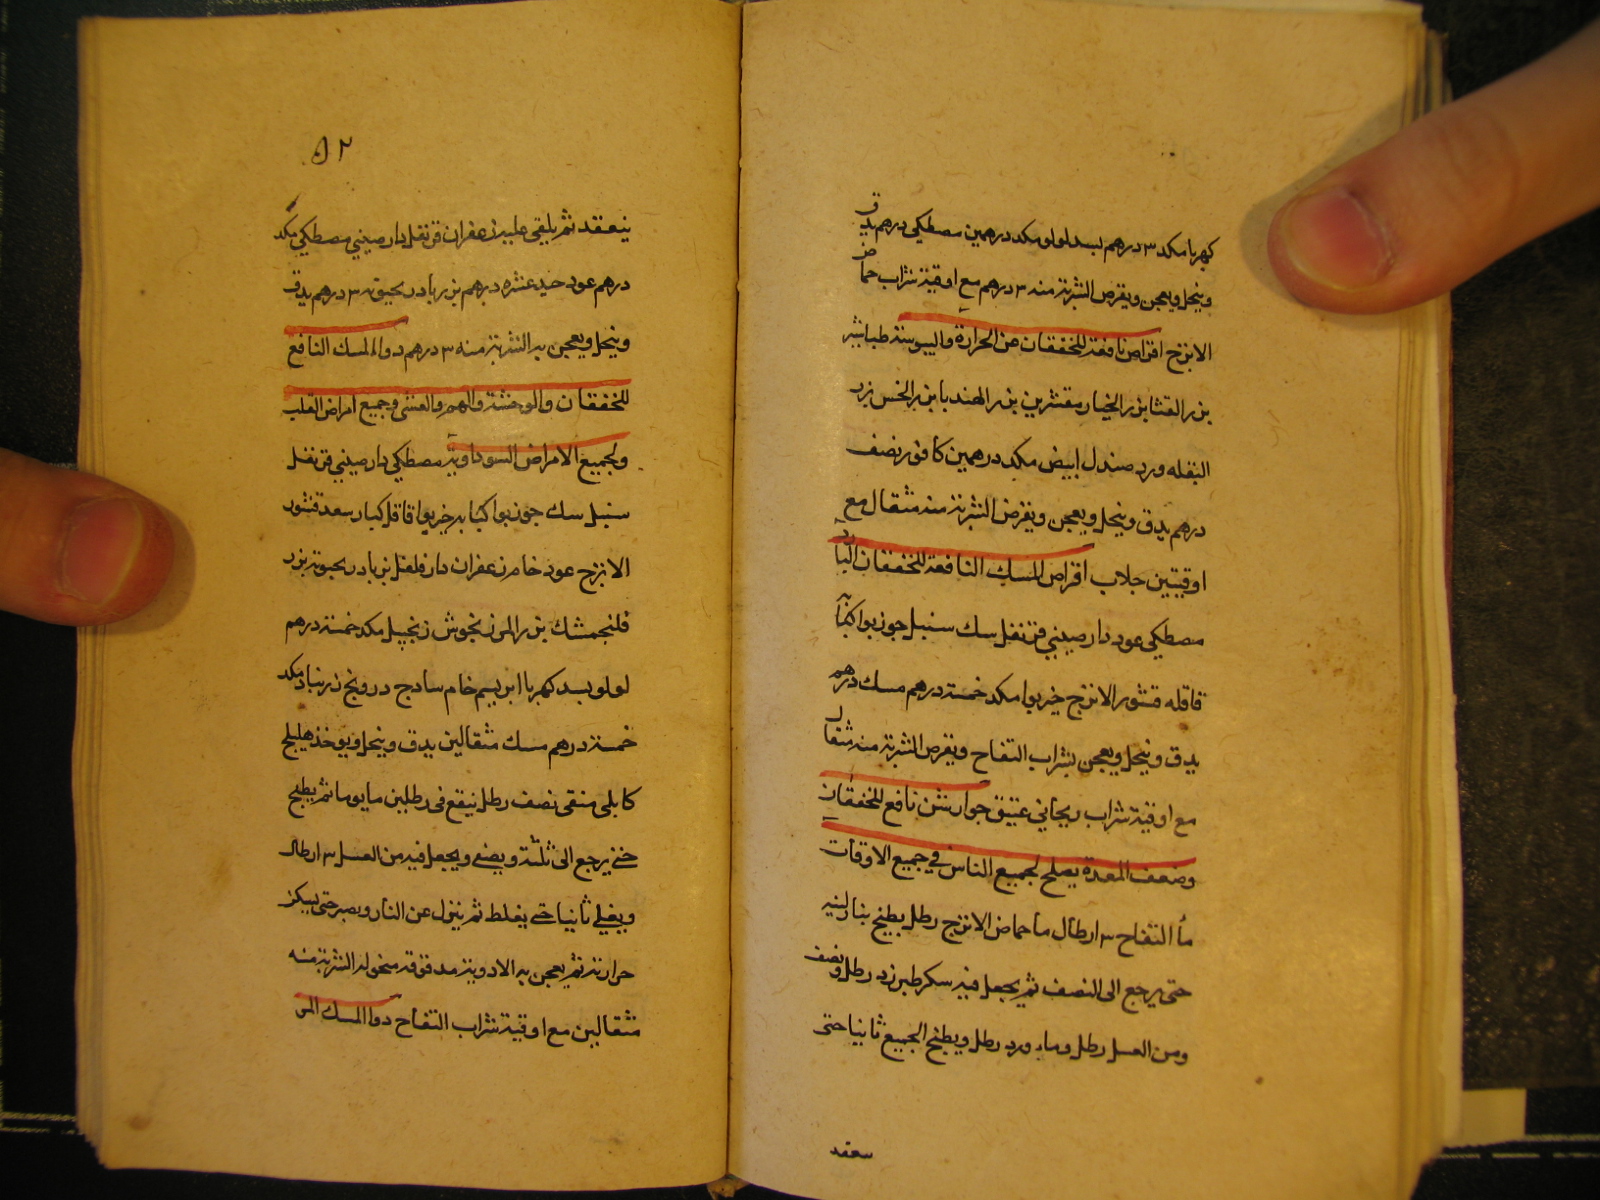 كهربا مكد ٣ درهم بسد لولو مكد درهمين مصطكي درهم يدق
وينخل ويعجن ويقرص الشربة منه ٣ درهم مع اوقية شراب حماض
الاترج اقراص نافعة للخفقان من الحرارة واليبوسة طباشير
بزر القثا بزر الخيار مقشرين بزر الهندبا بزر الخس بزر
البقله ورد صندل ابيض مكد درهمين كافور نصف
درهم يدق وينخل ويعجن ويقرص الشربة منه مثقال مع
اوقيتين جلاب اقراص المسك النافعة للخفقان البارد
مصطكي عود دارصيني قرنفل سك سنبل جوزبوا كبابه
قاقله قشور الاترج خيربوا مكد خمسة درهم مسك درهم
يدق وينخل ويعجن بشراب التفاح ويقرص الشربة منه مثقال
مع اوقية شراب ريحاني عتيق جوارشن نافع للخفقان
وضعف المعدة يصلح لجميع الناس في جميع الاوقات
ما التفاح ٣ ارطال ما حماض الاترج رطل يطبخ بنار لينه
حتى يرجع الى النصف ثم يجعل فيه سكر طبرزد رطل ونصف
ومن العسل رطل وماء ورد رطل ويطبخ الجميع ثانيا حتى
ينعقد
٥٢
ينعقد ثم يلقى عليه زعفران قرنفل دارصيني مصطكي مكد
درهم عود جيد عشره درهم بزر بادرنجبويه ٣ درهم يدق
وينخل ويعجن به الشربة منه ٣ درهم دوا المسك النافع
للخفقان والوحشة والهم والغشى وجميع امراض القلب
ولجميع الامراض السوداوية مصطكي دارصيني قرنفل
سنبل سك جوزبوا كبابه خيربوا قاقل كبار سعد قشور
الاترج عود خام زعفران دارفلفل بزر بادرنجبوية بزر
فلنجمشك بزر المرزنجوش زنجبيل مكد خمسة درهم
لولو بسد كهربا ابريسم خام سادج درونج زرنباد مكد
خمسة درهم مسك مثقالين يدق وينخل ويوخذ هليلج
كابلى منقى نصف رطل ينقع فى رطلين ما يوما ثم يطبخ
حتى يرجع الى ثلثه ويصفى ويجعل فيه من العسل ٣ ارطال
ويغلي ثانيا حتى يغلظ ثم ينزل عن النار ويصبر حتى يسكن
حرارته ثم يعجن به الادوية مدقوقه منخوله الشربة منه
مثقالين مع اوقية شراب التفاح دوا المسك المر